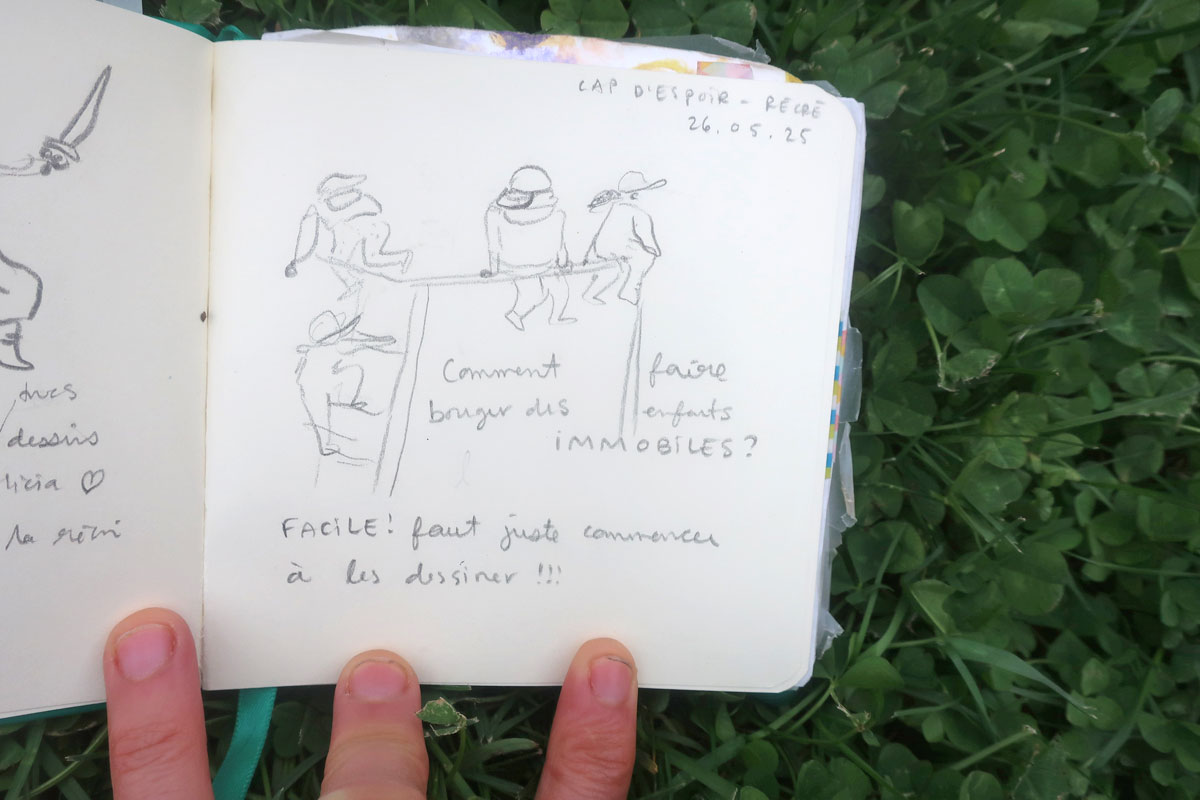 dessins
licia ♡
la récré
CAP D'ESPOIR - RÉCRÉ
26.05.25
Comment faire
bouger des enfants
IMMOBILES ?
FACILE ! faut juste commencer
à les dessiner !!!